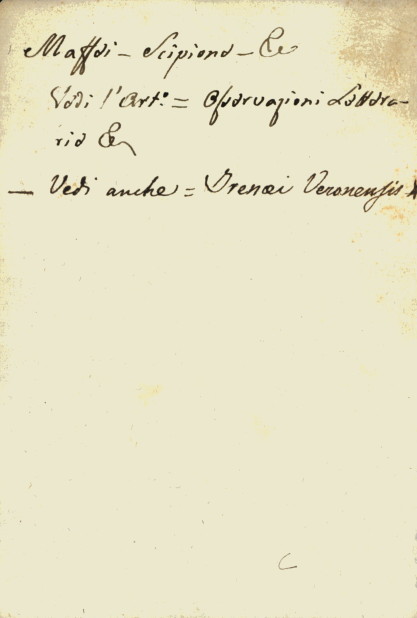 Maffei - Scipione - &c
Vedi l'Art.º = Osservazioni Lettera-
rie &c
— Vedi anche = Irenæi Veronensis